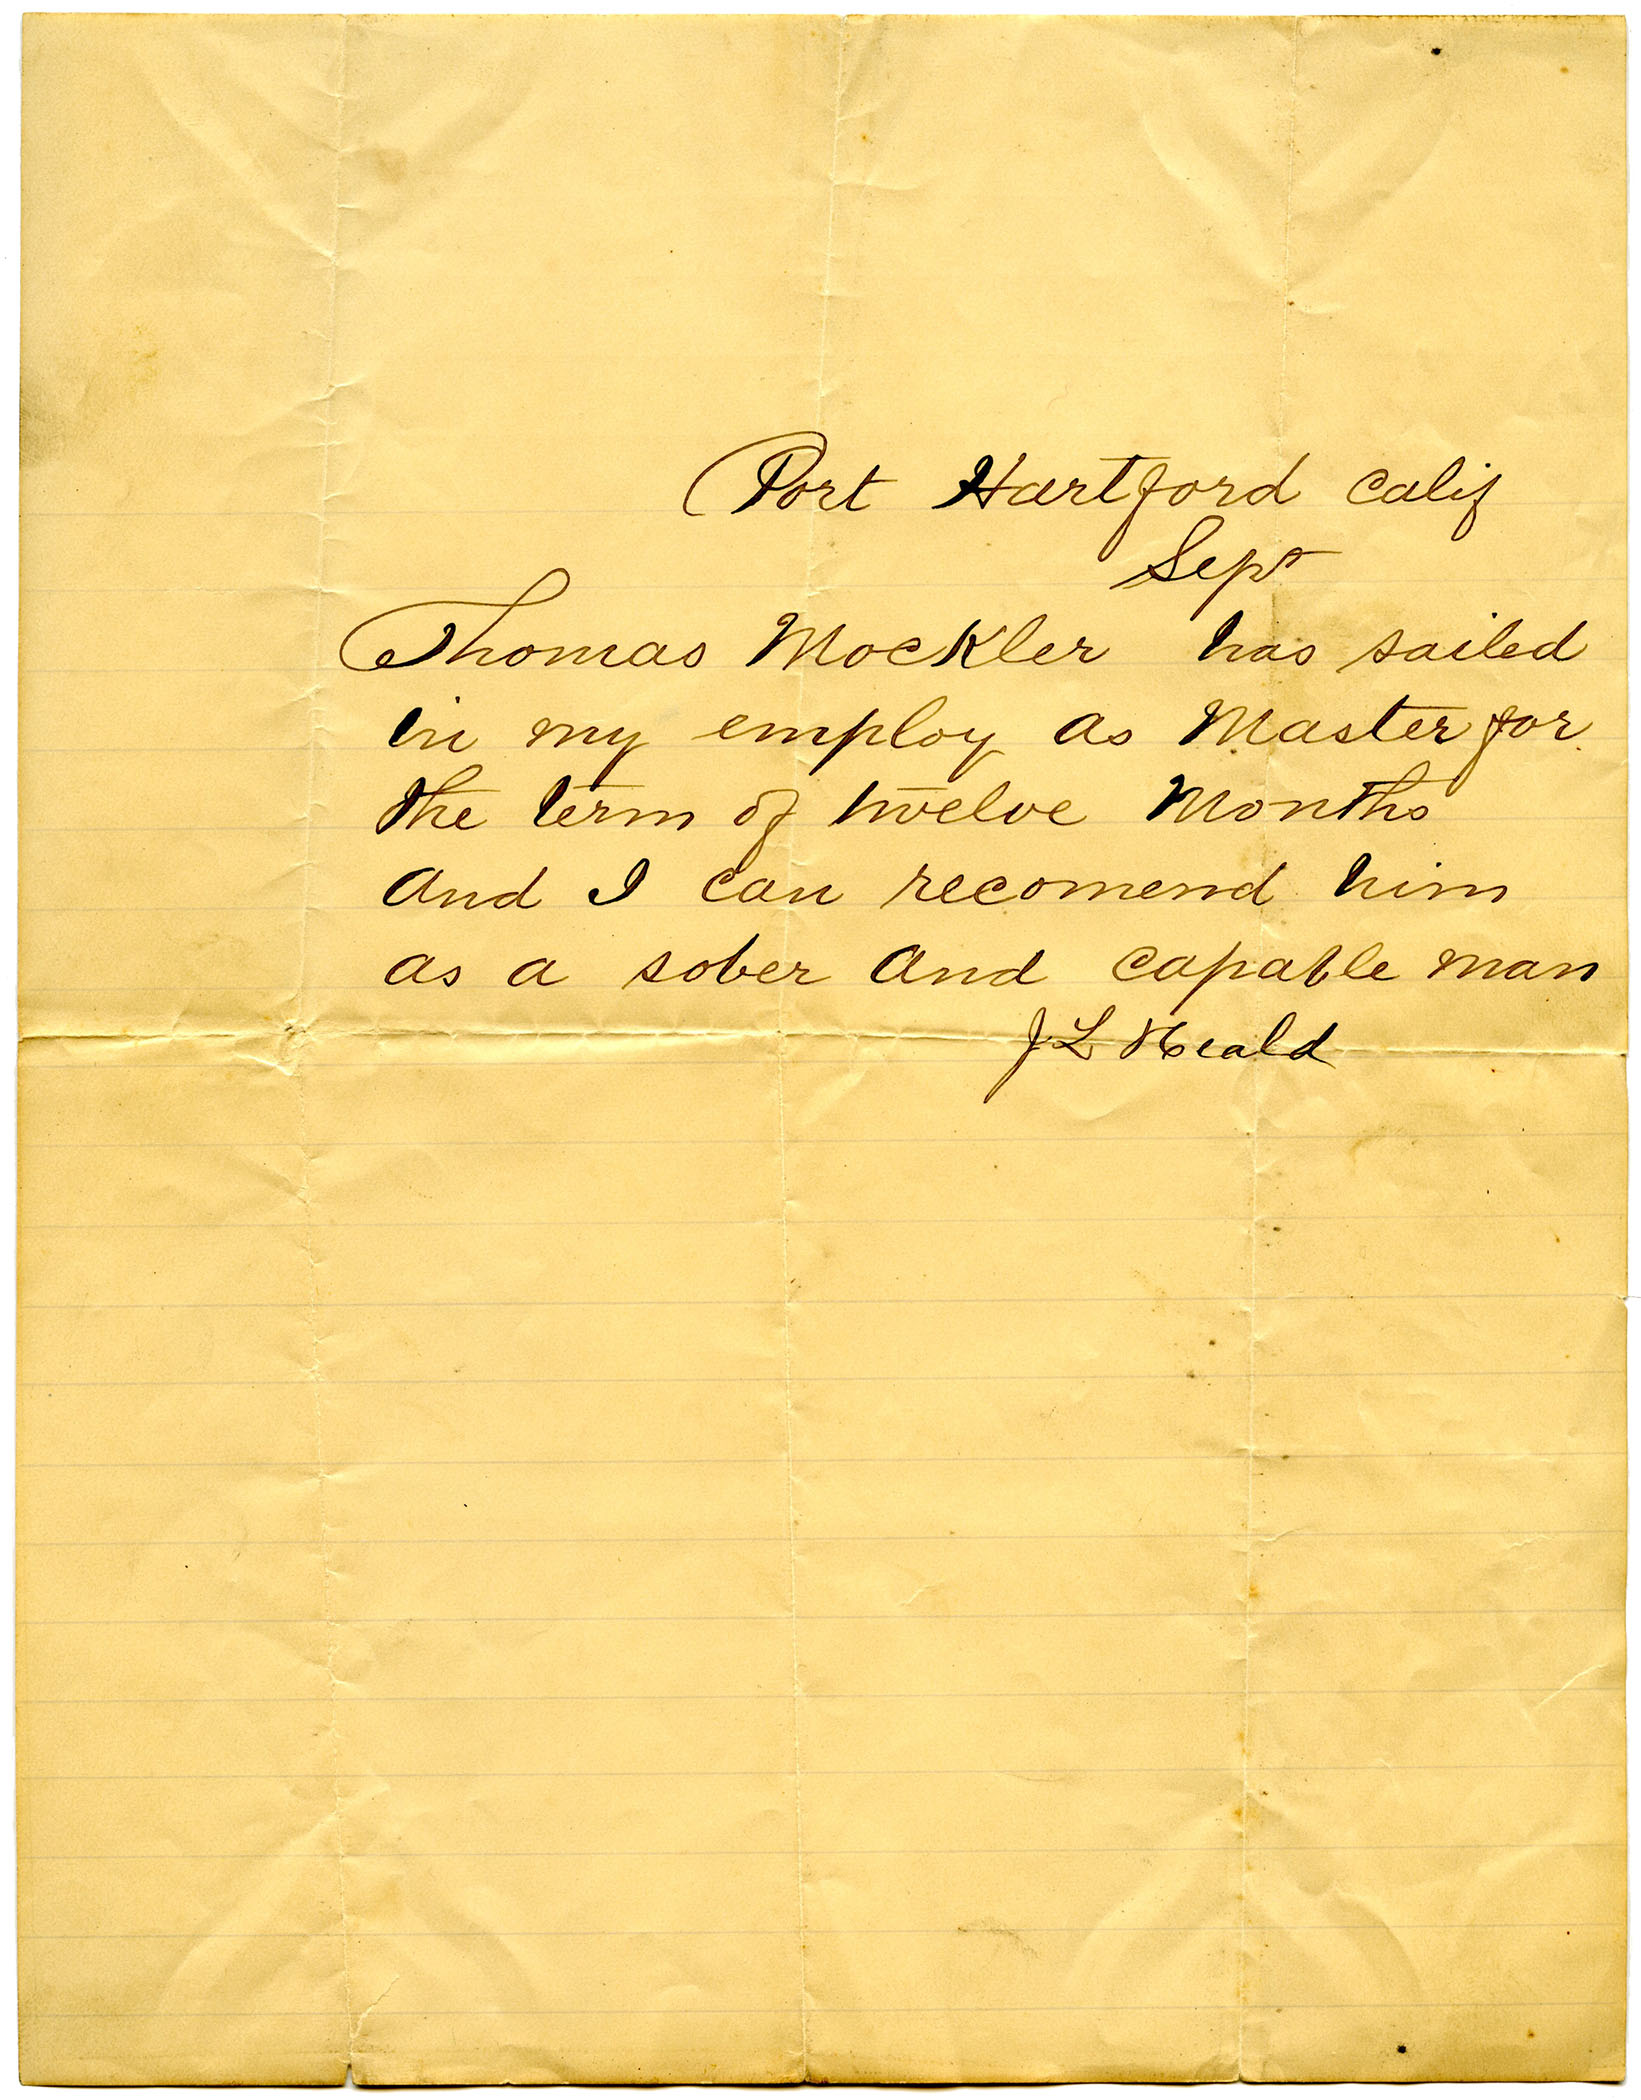 Port Hartford Calif
Sept
Thomas Mockler has sailed
in my employ as Master for
the term of twelve Months
and I can recomend him
as a sober and capable man
J L Heald